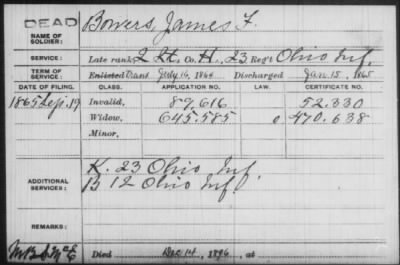 DEAD
NAME OF SOLDIER: Bowers, James F.
SERVICE: Late rank, 2 Lt., Co. H., 23 Reg't Ohio Inf.
TERM OF SERVICE: Enlisted July 16, 1864 Discharged Jan. 15, 1865
DATE OF FILING. CLASS. APPLICATION NO. LAW. CERTIFICATE NO.
1865 Sep. 19 Invalid, 87.616 52.330
Widow, 645.585 0 470.638
Minor,
ADDITIONAL SERVICES: K. 23 Ohio Inf.
B 12 Ohio Inf.
REMARKS:
Died Dec 14, 1896, at